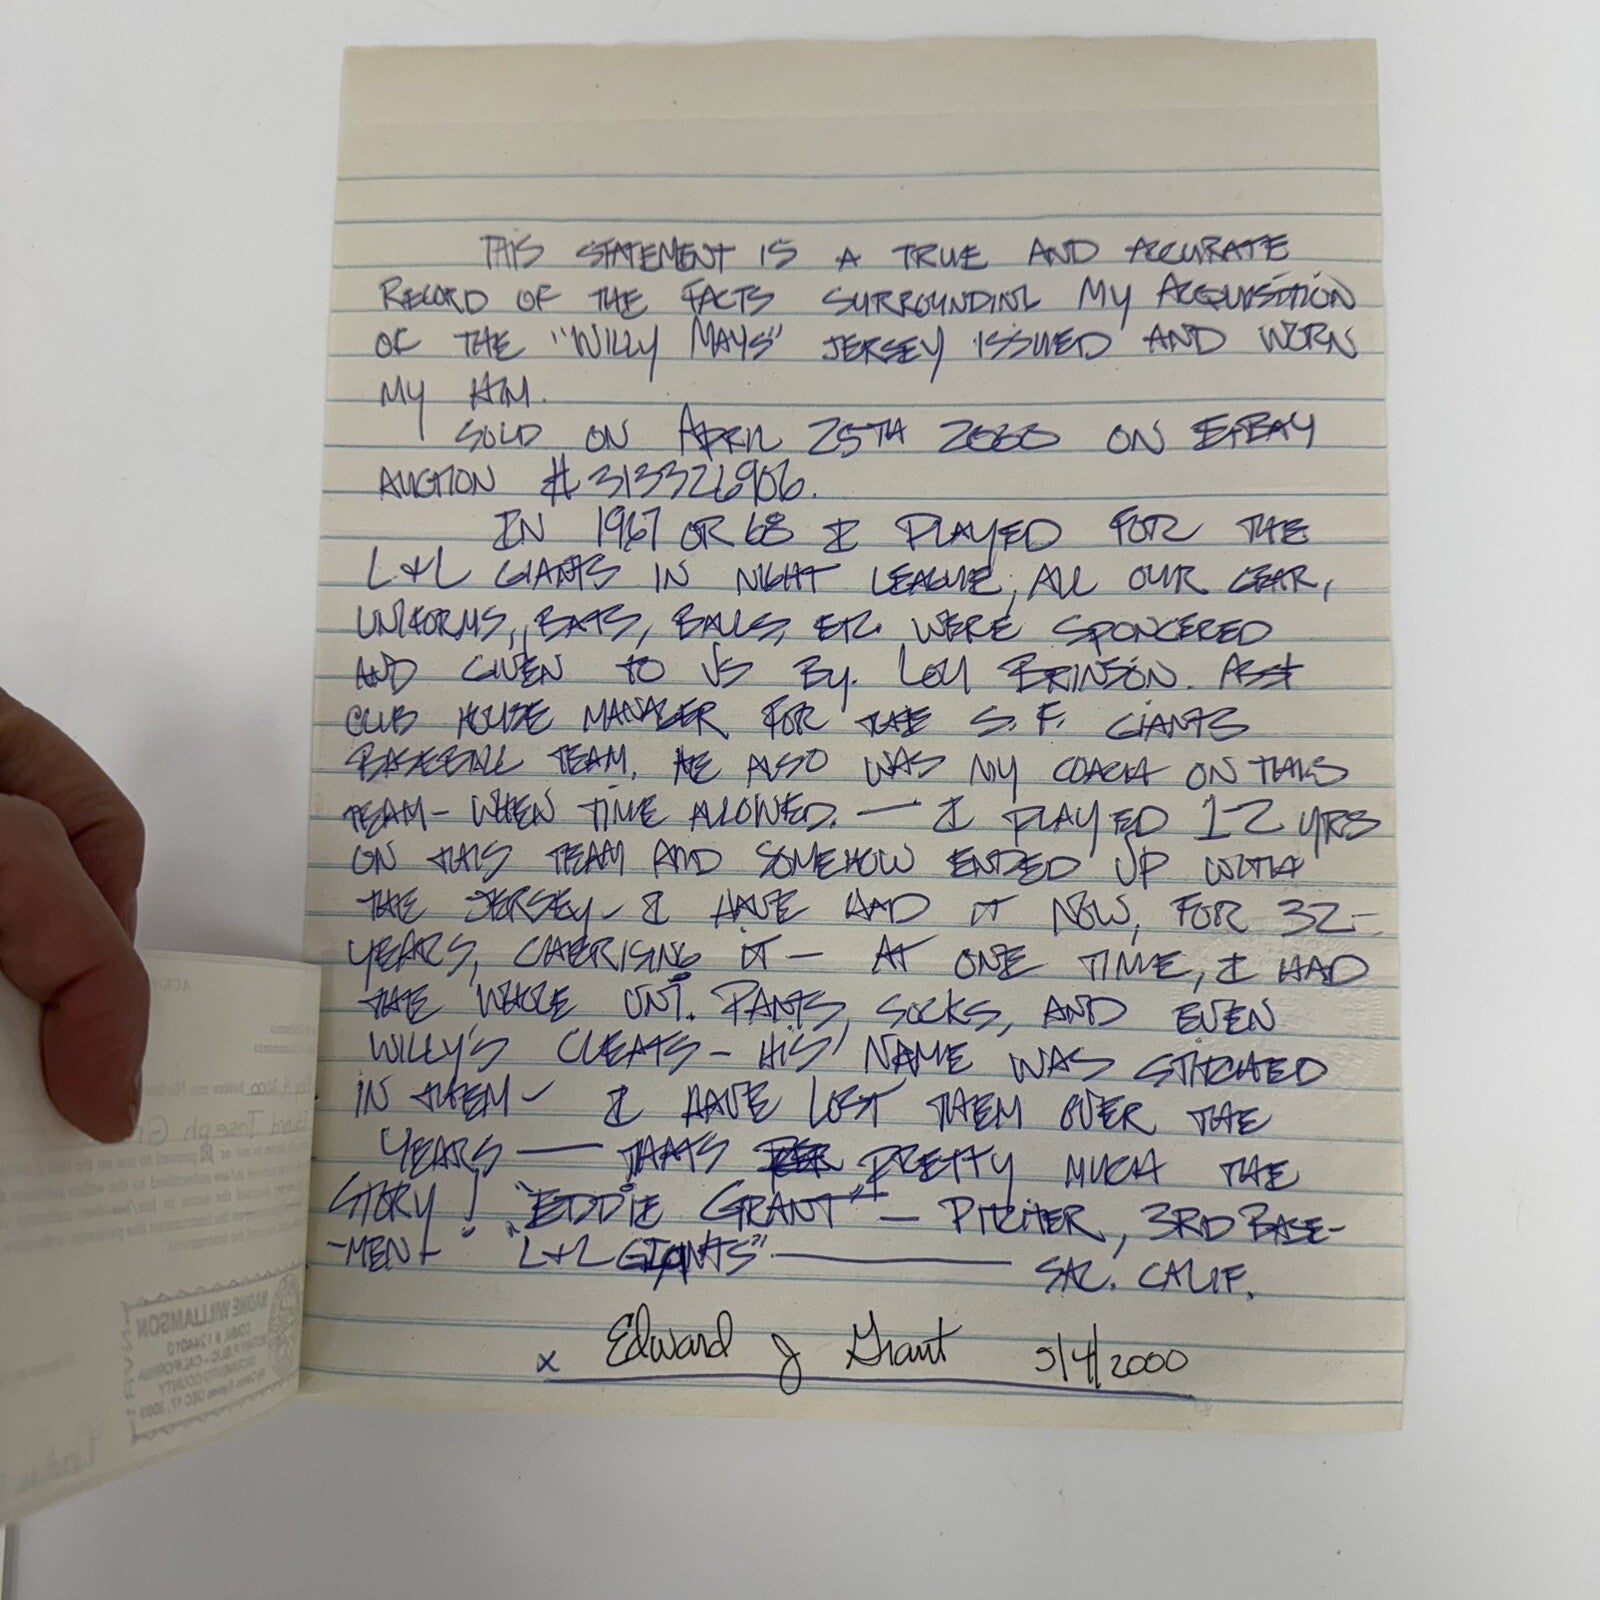 THIS STATEMENT IS A TRUE AND ACCURATE
RECORD OF THE FACTS SURROUNDING MY ACQUISITION
OF THE "WILLY MAYS" JERSEY ISSUED AND WORN
MY HIM.
SOLD ON APRIL 25TH 2000 ON E-BAY
AUCTION # 313326906.
IN 1967 OR 68 I PLAYED FOR THE
L+L GIANTS IN NIGHT LEAGUE, ALL OUR GEAR,
UNIFORMS, BATS, BALLS, ETC. WERE SPONCERED
AND GIVEN TO US BY. LOU BRINSON. ASST
CLUB HOUSE MANAGER FOR THE S. F. GIANTS
BASEBALL TEAM. HE ALSO WAS MY COACH ON THIS
TEAM- WHEN TIME ALLOWED. — I PLAYED 12 YRS
ON THIS TEAM AND SOMEHOW ENDED UP WITH
THE JERSEY- I HAVE HAD IT NOW, FOR 32-
YEARS, CHERISING IT — AT ONE TIME, I HAD
THE WHOLE UNI. PANTS, SOCKS, AND EVEN
WILLY'S CLEATS - HIS NAME WAS STITCHED
IN THEM- I HAVE LOST THEM OVER THE
YEARS — THATS PRETTY MUCH THE
STORY! "EDDIE GRANT" — PITCHER, 3RD BASE-
-MENT "L+L GIANTS" — SAC. CALIF.
x Edward J Grant 5/4/2000
Joseph
NADINE WILLIAMSON
COMM. # 1244010
NOTARY PUBLIC - CALIFORNIA
SACRAMENTO COUNTY